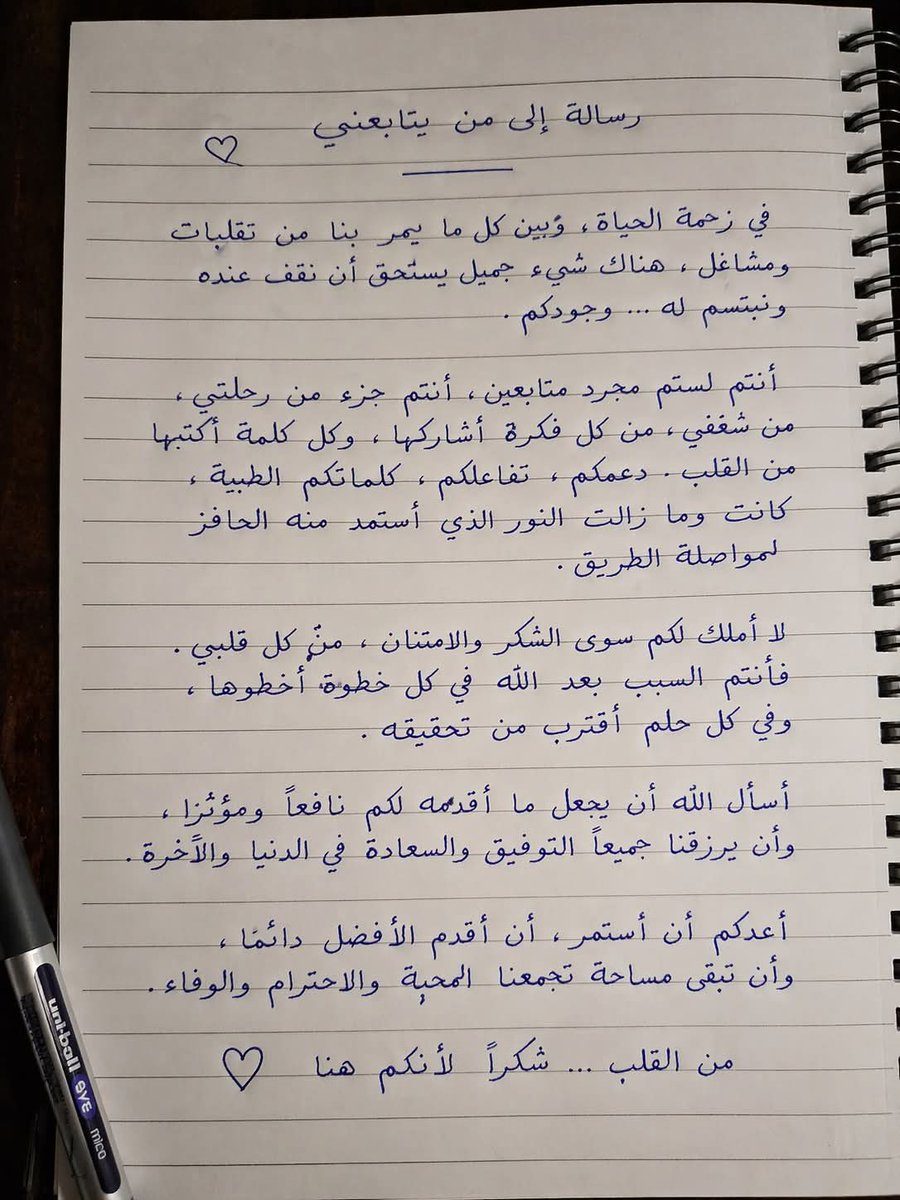 رسالة إلى من يتابعني
في زحمة الحياة، وبين كل ما يمر بنا من تقلبات
ومشاغل، هناك شيء جميل يستحق أن نقف عنده
ونبتسم له ... وجودكم.
أنتم لستم مجرد متابعين، أنتم جزء من رحلتي،
من شغفي، من كل فكرة أشاركها، وكل كلمة أكتبها
من القلب. دعمكم، تفاعلكم، كلماتكم الطيبة،
كانت وما زالت النور الذي أستمد منه الحافز
لمواصلة الطريق.
لا أملك لكم سوى الشكر والامتنان، من كل قلبي.
فأنتم السبب بعد الله في كل خطوة أخطوها،
وفي كل حلم أقترب من تحقيقه.
أسأل الله أن يجعل ما أقدمه لكم نافعاً ومؤثرا،
وأن يرزقنا جميعاً التوفيق والسعادة في الدنيا والآخرة.
أعدكم أن أستمر، أن أقدم الأفضل دائمًا،
وأن تبقى مساحة تجمعنا المحبة والاحترام والوفاء.
من القلب ... شكراً لأنكم هنا
uni-ball eye mico